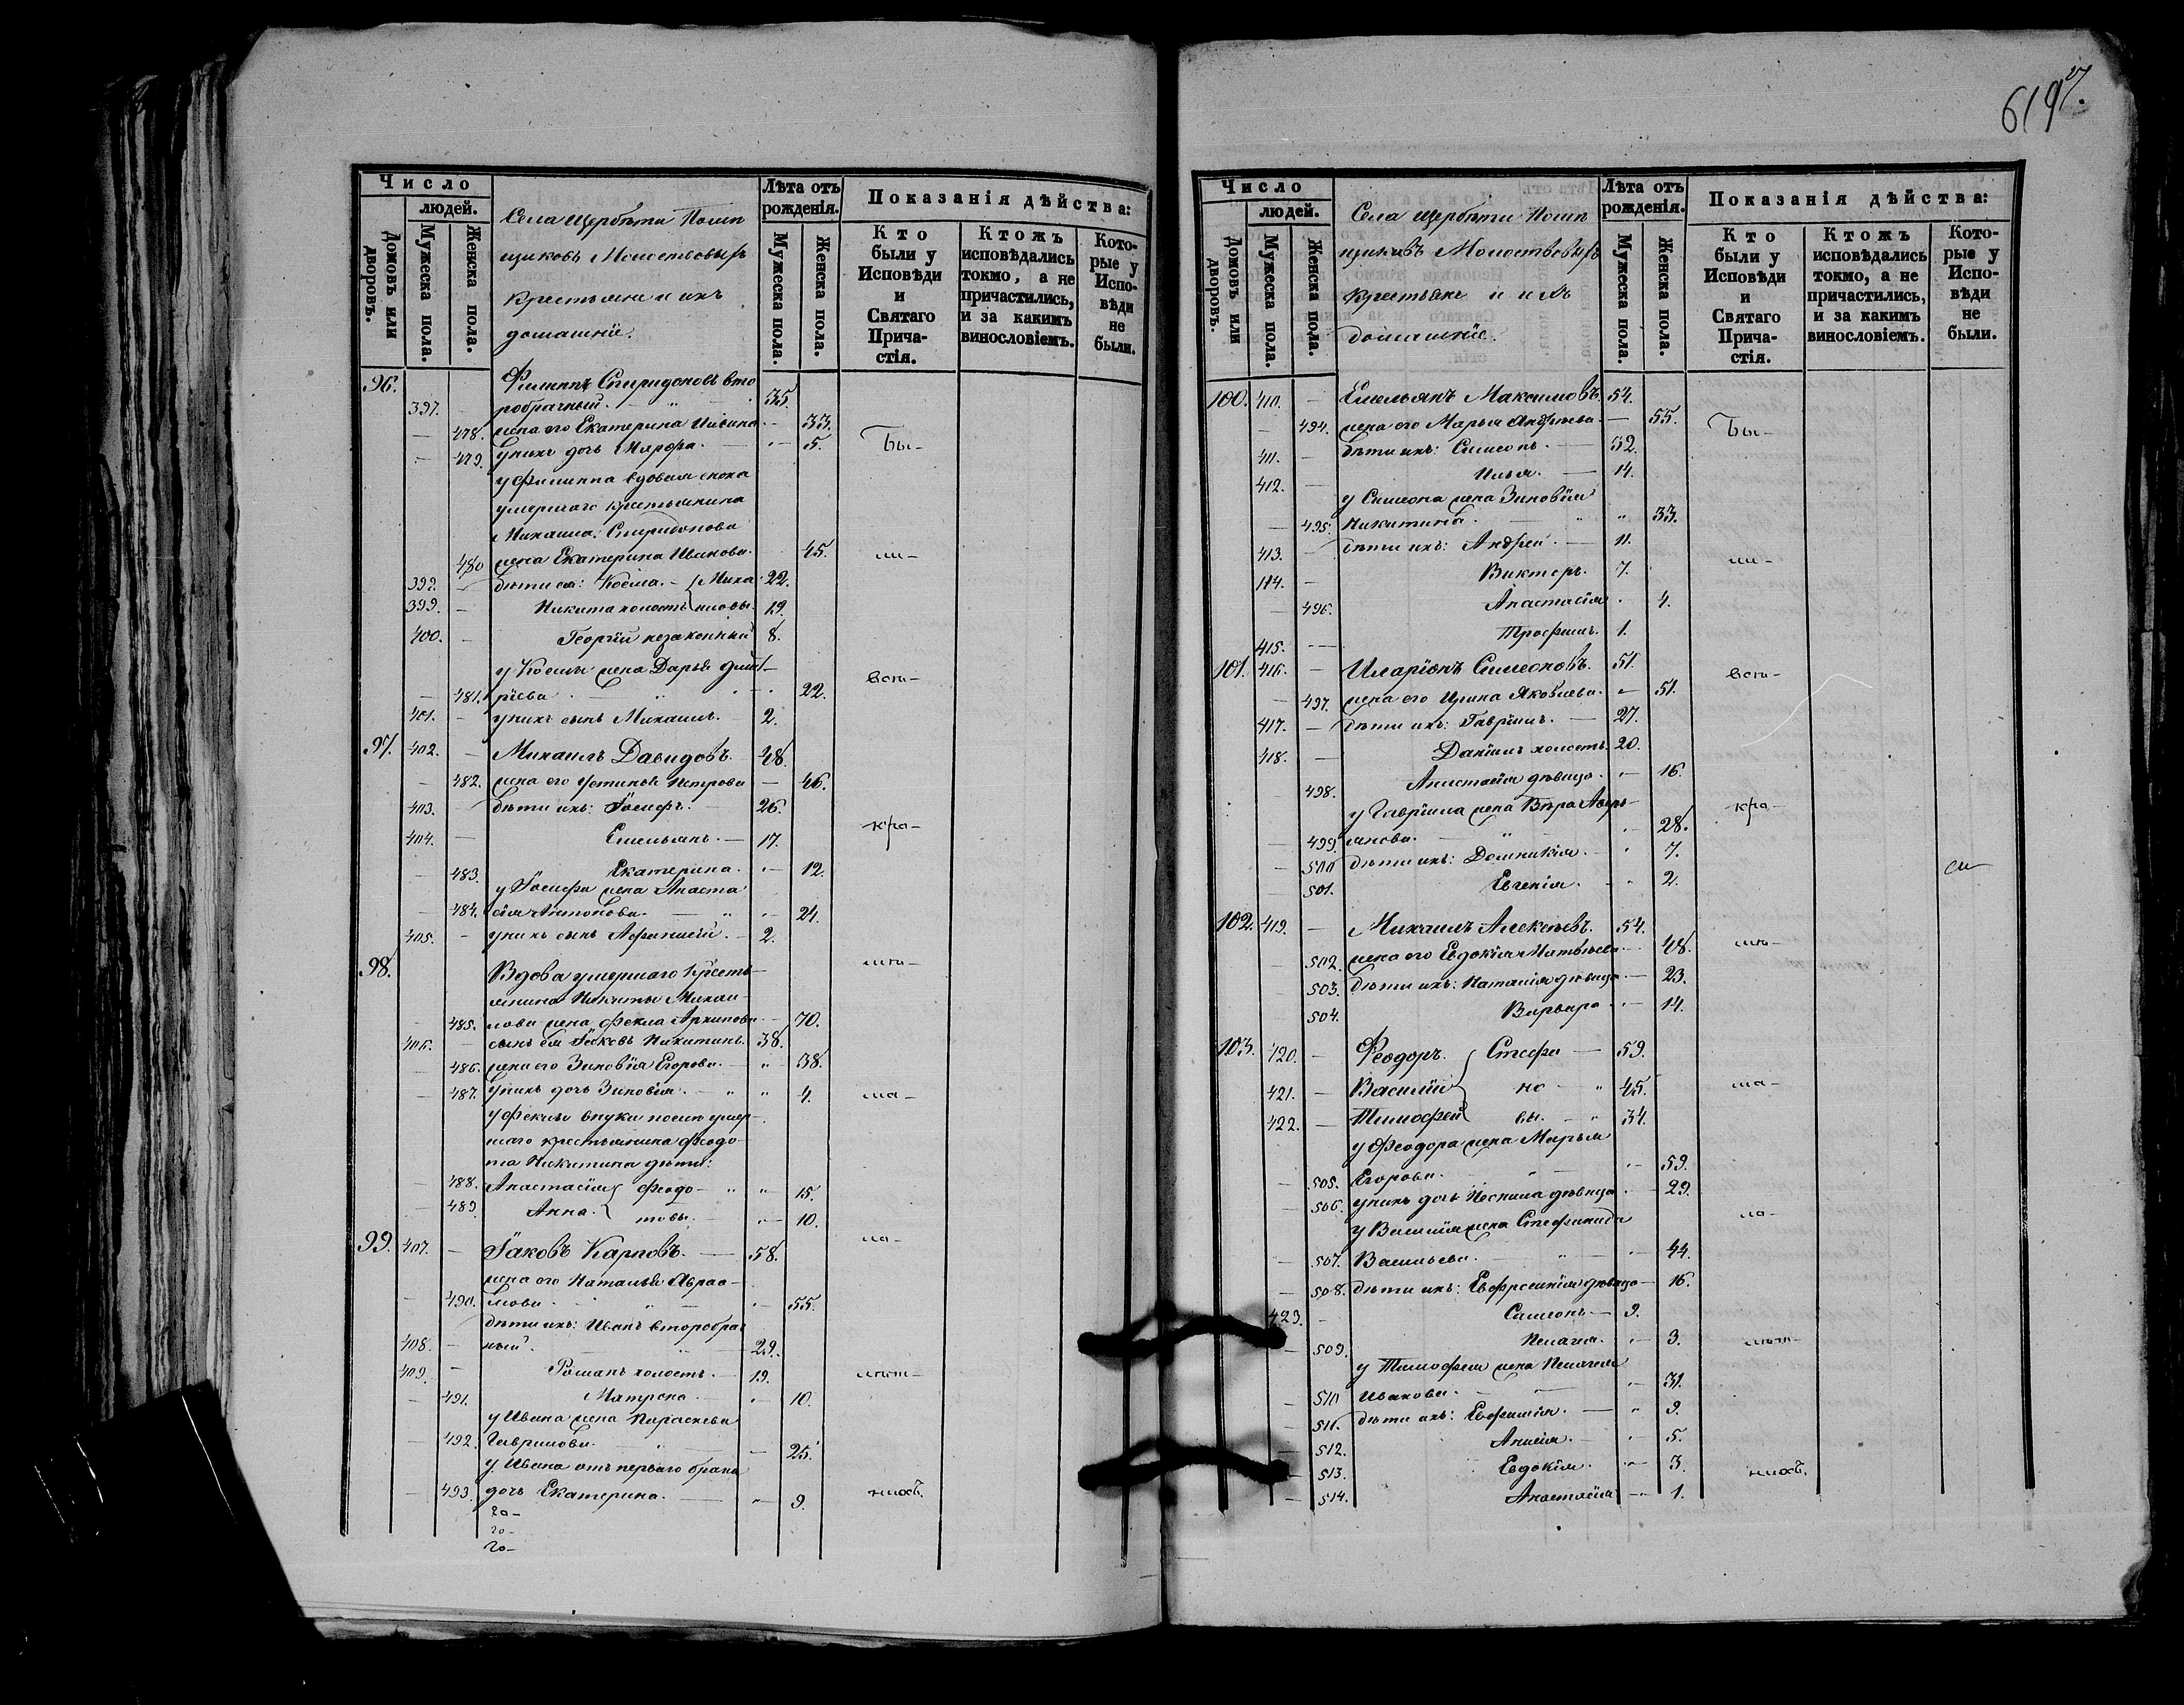 619
27.
Число
людей.
Домовъ или дворовъ.
Мужеска пола.
Женска пола.
Села Щербѣти Помѣ
щиковъ Молоствовыхъ
крестьяне и ихъ
домашніе.
Лѣта отъ рожденія.
Мужеска пола.
Женска пола.
Показанія дѣйства:
Кто были у Исповѣди и Святаго Прича-стія.
Ктожъ исповѣдались токмо, а не причастились, и за какимъ винословіемъ.
Кото-рые у Испо-вѣди не были.
96. Филиппъ Спиридоновъ вто
397. — робрачный. — 35.
— 478. жена его Екатерина — 33.
— 479. у нихъ дочь Марфа. — 5. Бы-
у Филиппа вдовая сноха
умершаго крестьянина
Михаила Спиридонова
480 жена Екатерина Иванова. 45. ли-
399. — дѣти ея: Косма. — Миха 22.
399. — Никита холостъ иловы. 19.
400. — Георгій незаконный 8.
у Космы жена Дарья Дмит-
— 481. ріева 22. вси-
401. — у нихъ сынъ Михаилъ. — 2.
97. 402. — Михаилъ Давидовъ. 48.
— 482. жена его Устинья Петрова — 46.
403. дѣти ихъ: Іосифъ. 26.
404. — Емельянъ. — 17. кра-
— 483. Екатерина. — 12.
у Іосифа жена Анаста
— 484. сія Антонова. — 24.
405. — у нихъ сынъ Афанасій. — 2.
98. Вдова умершаго кресть-
янина Никиты Михаи-
— 485. лова жена Фекла Архипова — 70.
406. — сынъ ея Іаковъ Никитинъ. 38.
— 486. жена его Зиновія Егорова. — 38.
— 487. у нихъ дочь Зиновія. 4.
у Феклы внуки послѣ умер-
шаго крестьянина Феодо-
та Никитина дѣти:
— 488. Анастасія Феодо- 15.
— 489. Анна. товы. 10.
99. 407. — Іаковъ Карповъ. — 58.
жена его Наталья Авраа-
— 490. мова. — 55.
дѣти ихъ: Иванъ второбрач
408. — ный. 29.
409. — Романъ холостъ. — 19.
— 491. Матрена. — 10.
у Ивана жена Параскева
— 492. Гаврилова. — 25.
у Ивана отъ перваго брака
— 493. дочь Екатерина. — 9.
го-
го-
го-
Число
людей.
Домовъ или дворовъ.
Мужеска пола.
Женска пола.
Села Щербѣти Помѣ
щиковъ Молоствовыхъ
крестьяне и ихъ
домашніе.
Лѣта отъ рожденія.
Мужеска пола.
Женска пола.
Показанія дѣйства:
Кто были у Исповѣди и Святаго Прича-стія.
Ктожъ исповѣдались токмо, а не причастились, и за какимъ винословіемъ.
Кото-рые у Испо-вѣди не были.
100. 410. — Емельянъ Максимовъ. 54.
— 494. жена его Марья Андреева — 55. Бы-
411. — дѣти ихъ: Симеонъ. — 32.
412. — Илья. — 14.
у Симеона жена Зиновія
— 495. Никитина. 33.
413. — дѣти ихъ: Андрей. — 11. ли-
414. — Викторъ. 7.
— 496. Анастасія 4.
415. — Трофимъ. 1.
101. 416. — Иларіонъ Симеоновъ. 51. вси-
— 497. жена его Ирина Яковлева. — 51.
417. — дѣти ихъ: Гавріилъ. — 27.
418. — Даніилъ холостъ. 20.
— 498. Анастасія дѣвица. — 16.
у Гавріила жена Вѣра Аверь- кра-
— 499. янова. 28.
— 500 дѣти ихъ: Домникія. 7.
501. Евгенія. 2.
102. 419. — Михаилъ Алексѣевъ. 54.
— 502. жена его Евдокія Матвѣева 48.
— 503. дѣти ихъ: Наталія дѣвица — 23.
— 504. Варвара 14.
103. 420. — Феодоръ. Стефа — 59.
421. — Василій но 45.
422. — Тимофей вы. 34.
у Феодора жена Марья
— 505. Егорова. 59.
— 506. у нихъ дочь дѣвица 29.
у Василія жена Стефанида
— 507. Васильева. 44.
— 508. дѣти ихъ: Евфросинія дѣвица — 16.
423. — Симеонъ — 9.
— 509. Пелагія. 3.
у Тимофея жена Пелагія
— 510 Иванова. 31.
— 511. дѣти ихъ: Евфимія. — 9.
— 512. Анисія. 5.
— 513. Евдокія. 3.
— 514. Анастасія — 1.